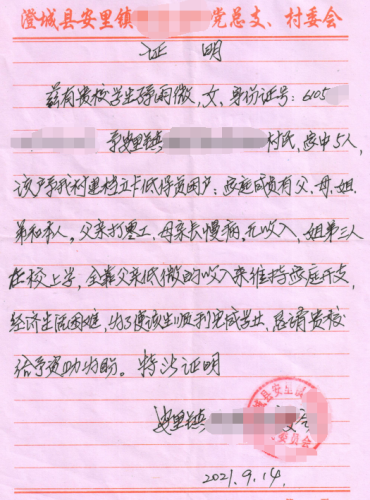 澄城县安里镇 党总支、村委会
证明
兹有贵校学生薛雨微，女，身份证号：6105
系安里镇 村民，家中5人，
该户系我村建档立卡低保贫困户；家庭成员有父、母、姐
弟和本人。父亲打零工，母亲长慢病，无收入，姐弟三人
在校上学，全靠父亲低微的收入来维持家庭开支，
经济生活困难，为了使该生顺利完成学业，恳请贵校
给予资助为盼。特此证明
安里镇
城县安里镇
委员会
2021.9.14.